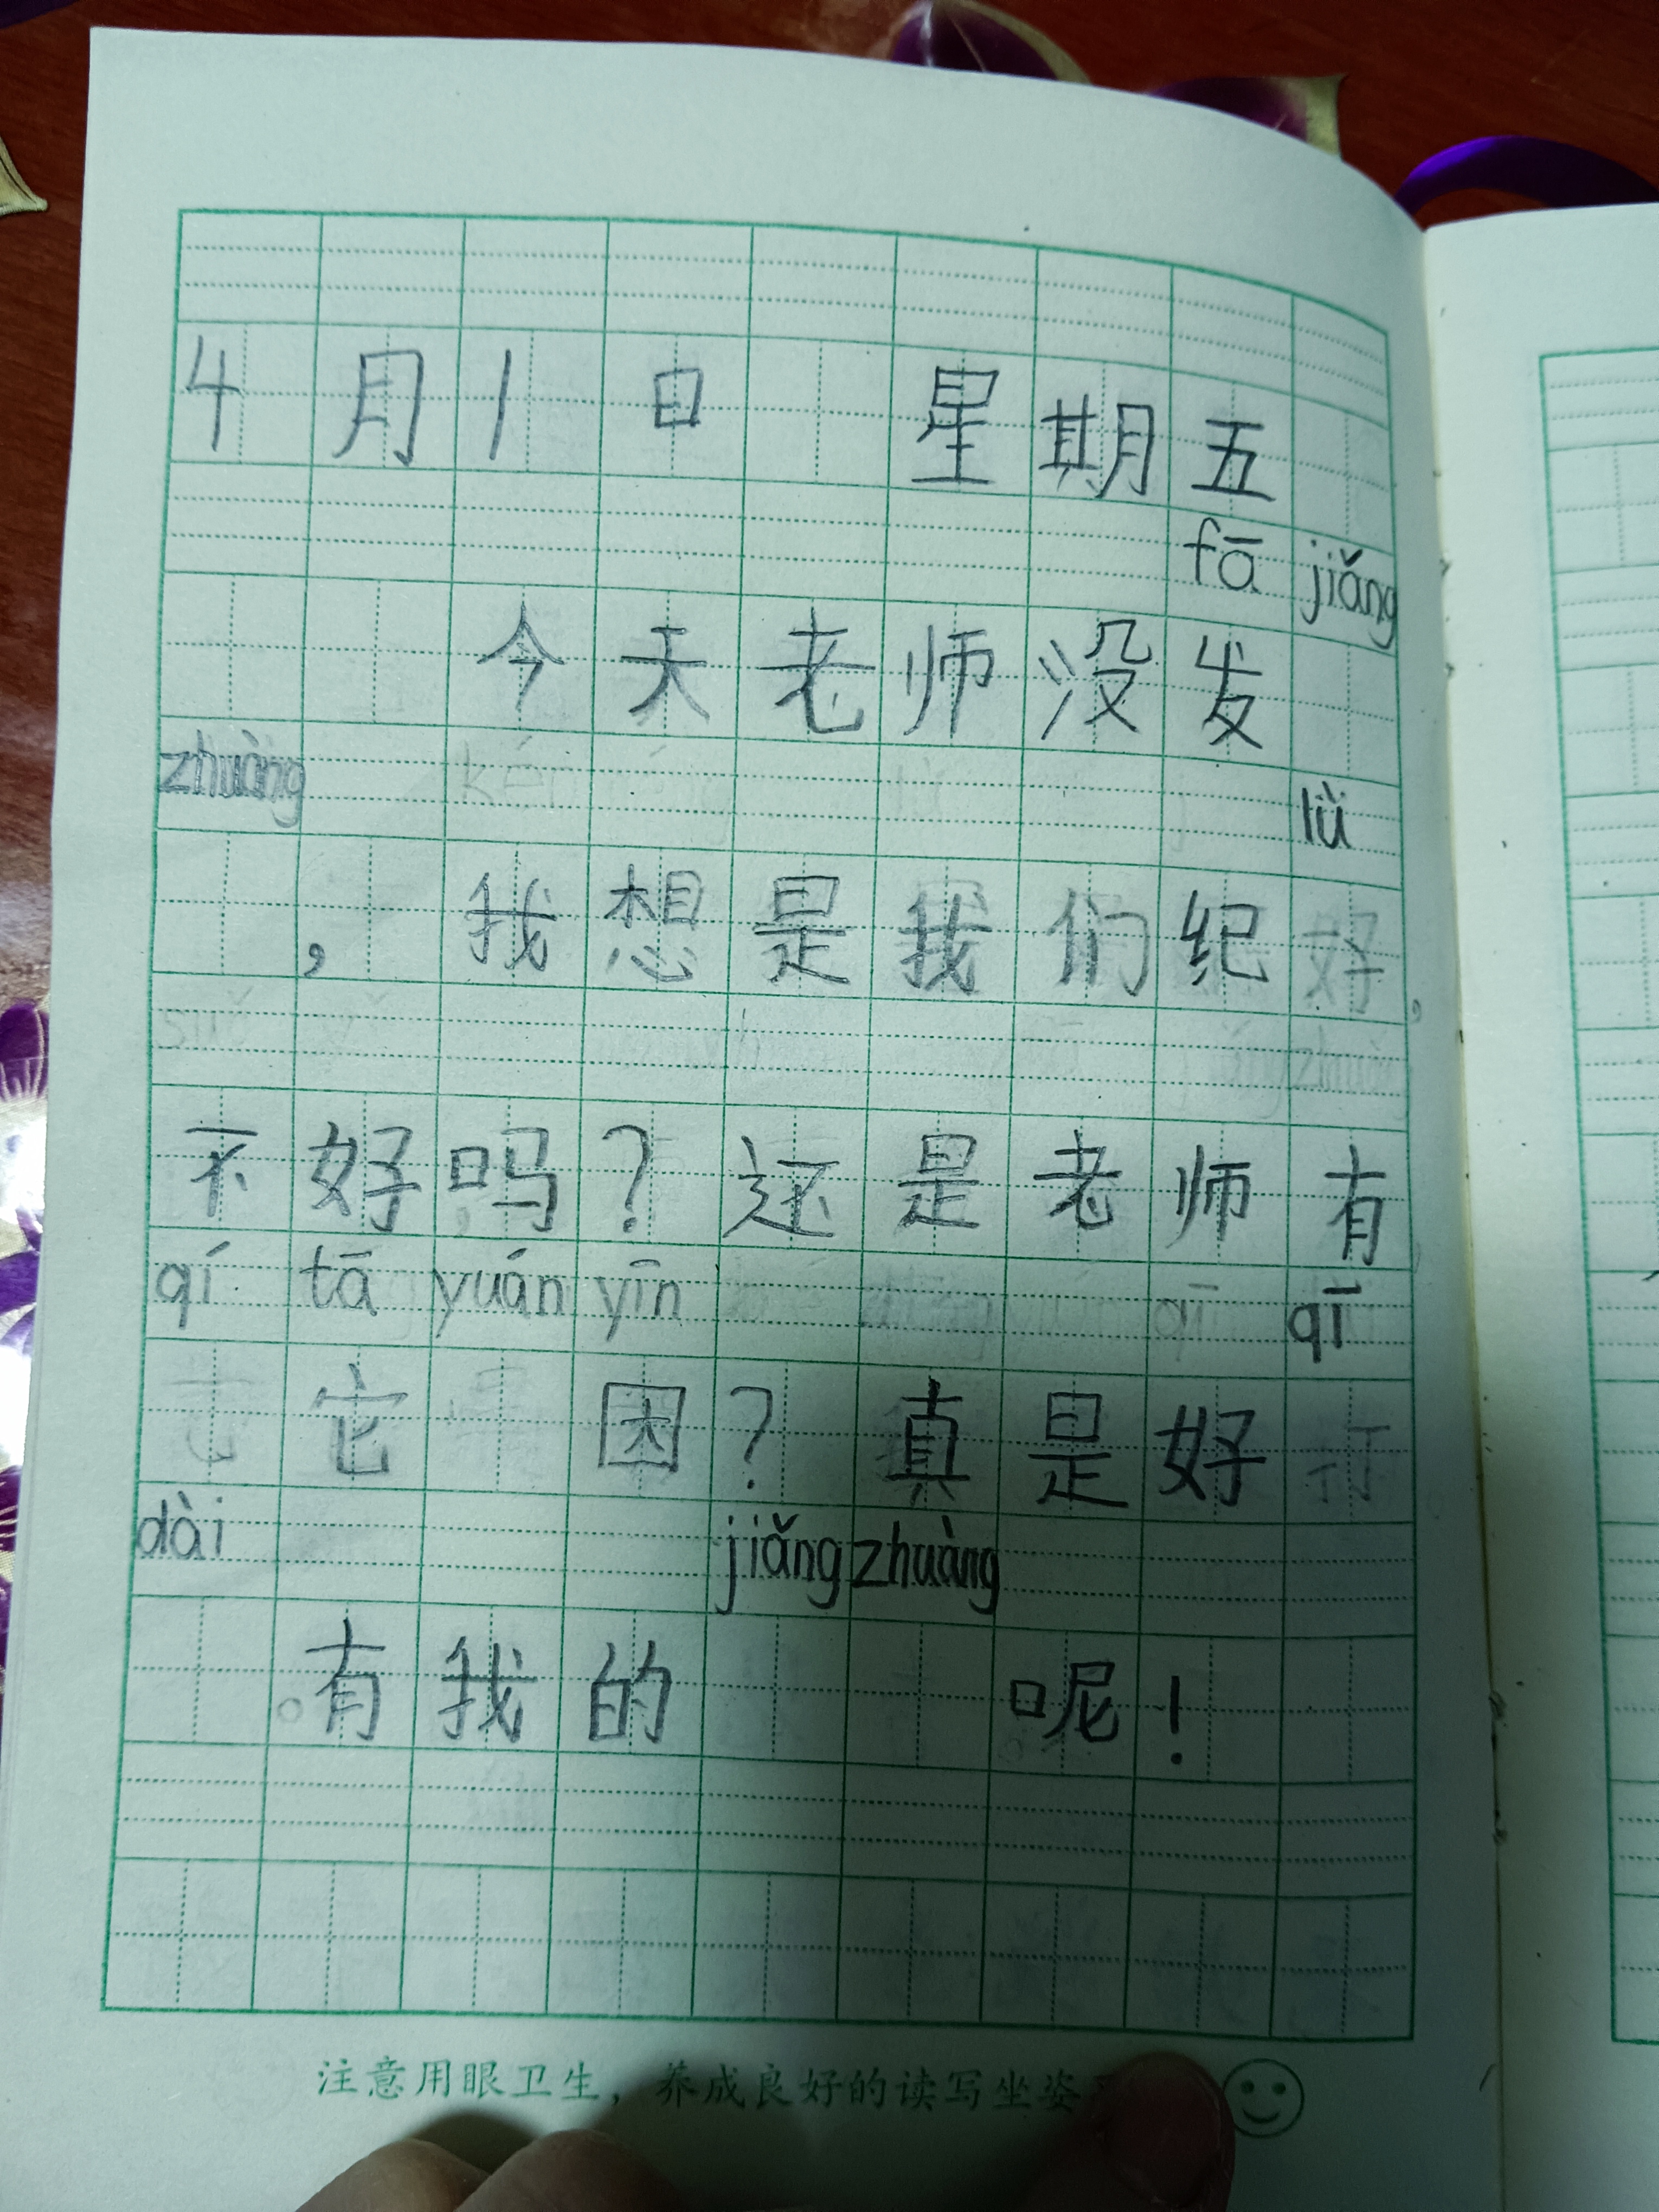 4月1日 星期五
fā jiǎng
今天老师没发
zhuàng lǜ
，我想是我们纪
不好吗？还是老师有
qí tā yuán yīn qī
它 因？真是好
dài jiǎng zhuàng
有我的 呢！
注意用眼卫生，养成良好的读写坐姿